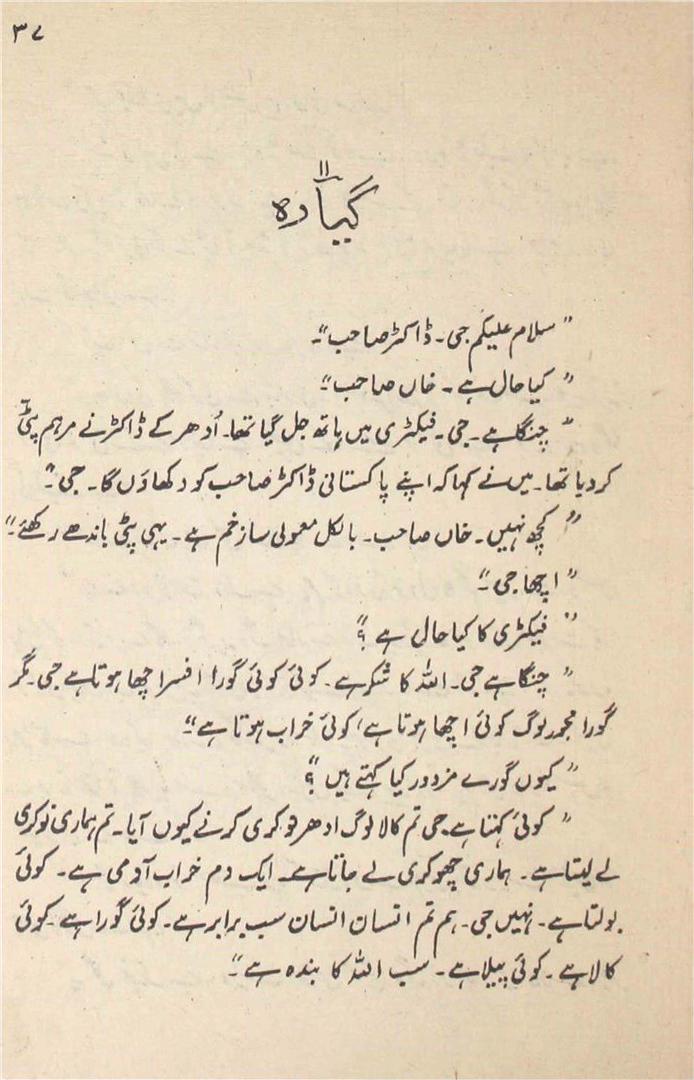 ۳۷
۱۱
گیارہ
"سلام علیکم جی۔ ڈاکٹر صاحب"۔
"کیا حال ہے۔ خاں صاحب"؛
"چنگا ہے۔ جی۔ فیکٹری میں ہاتھ جل گیا تھا۔ اُدھر کے ڈاکٹر نے مرہم پٹی
کر دیا تھا۔ میں نے کہا کہ اپنے پاکستانی ڈاکٹر صاحب کو دکھاؤں گا۔ جی"۔
"کچھ نہیں۔ خاں صاحب۔ بالکل معمولی سا زخم ہے۔ یہی پٹی باندھے رکھئے۔"
"اچھا جی"۔
"فیکٹری کا کیا حال ہے؟"
"چنگا ہے جی۔ اللہ کا شکر ہے۔ کوئی کوئی گورا افسر اچھا ہوتا ہے جی۔ مگر
گورا مجور لوگ کوئی اچھا ہوتا ہے، کوئی خراب ہوتا ہے"۔
"کیوں گورے مزدور کیا کہتے ہیں؟"
"کوئی کہتا ہے جی تم کالا لوگ ادھر نوکری کرنے کیوں آیا۔ تم ہماری نوکری
لے لیتا ہے۔ ہماری چھوکری لے جاتا ہے۔ ایک دم خراب آدمی ہے۔ کوئی
بولتا ہے۔ نہیں جی۔ ہم تم انسان انسان سب برابر ہے۔ کوئی گورا ہے۔ کوئی
کالا ہے۔ کوئی پیلا ہے۔ سب اللہ کا بندہ ہے"۔